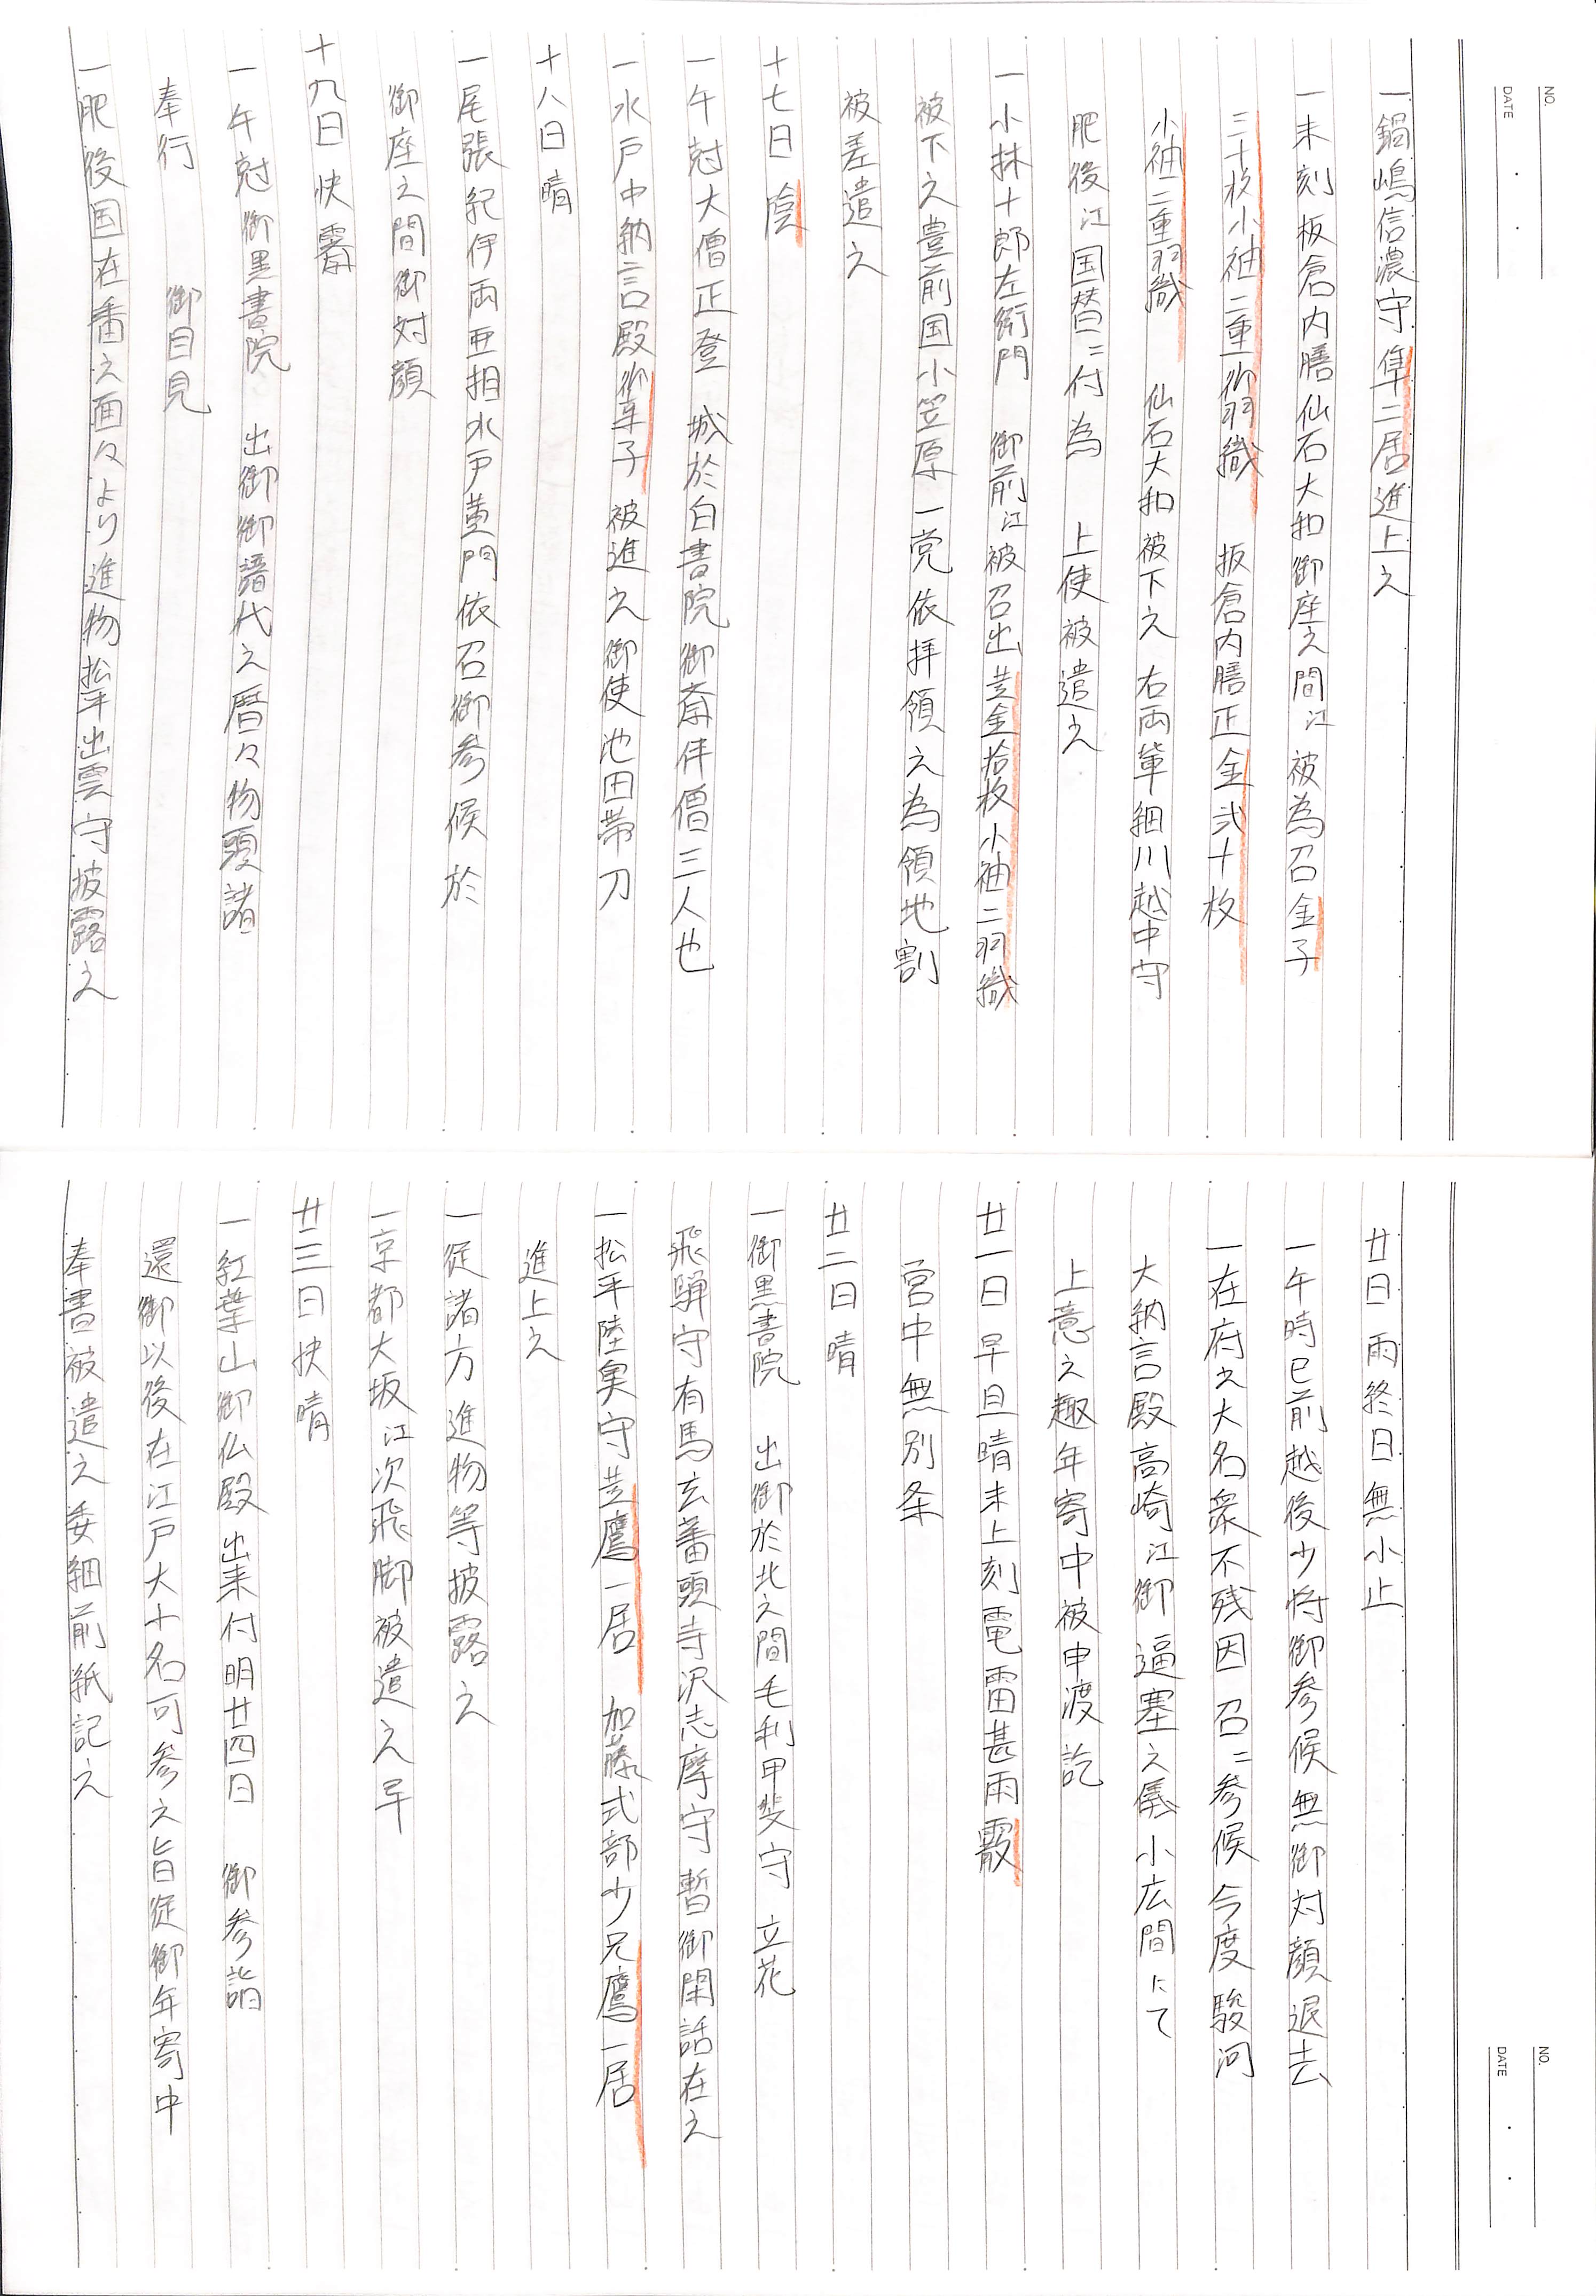 NO.
DATE
一鍋嶋信濃守隼二居進上之
一未刻板倉内膳仙石大和御座之間江被為召金子
二十枚小袖二重御羽織　板倉内膳正金弐十枚
小袖二重羽織　仙石大和被下之右両輩細川越中守
肥後江国替ニ付為　上使被遣之
一小林十郎左衛門　御前江被召出並金拾枚小袖二羽織
被下之豊前国小笠原一党依拝領之為領地割
被差遣之
十七日陰
一午尅大僧正登　城於白書院御斎伴僧三人也
一水戸中納言殿御菓子被進之御使池田帯刀
十八日晴
一尾張紀伊両亜相水戸黄門依召御参候於
御座之間御対顔
十九日快霽
一午尅御黒書院　出御御譜代之暦々物頭諸
奉行　御目見
一肥後国在番之面々より進物松平出雲守披露之
NO.
DATE
廿日雨終日無小止
一午時已前越後少将御参候無御対顔退去
一在府之大名衆不残因召ニ参候今度駿河
大納言殿高崎江御逼塞之儀小広間にて
上意之趣年寄中被申渡訖
廿一日早旦晴未上刻電雷甚雨霰
宮中無別条
廿二日晴
一御黒書院　出御於北之間毛利甲斐守　立花
飛騨守有馬玄蕃頭寺沢志摩守暫御閑話在之
一松平陸奥守並鷹一居　加藤式部少兄鷹一居
進上之
一従諸方進物等披露之
一京都大坂江次飛脚被遣之早
廿三日快晴
一紅葉山御仏殿出来付明廿四日　御参詣
還御以後在江戸大小名可参之旨従御年寄中
奉書被遣之委細前紙記之